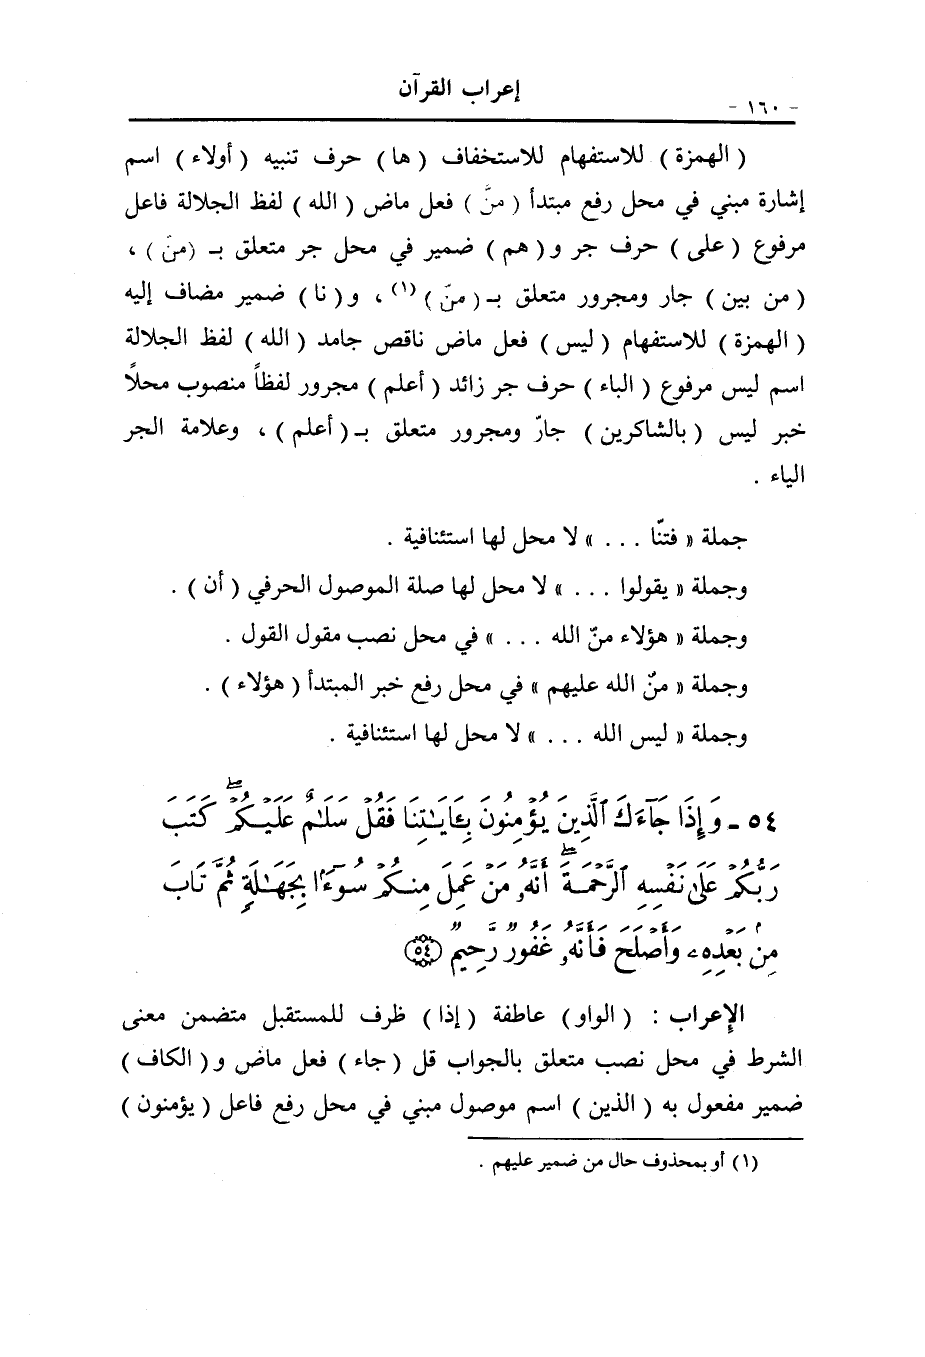 إعراب القرآن
- ١٦٠ -
( الهمزة ) للاستفهام للاستخفاف ( ها ) حرف تنبيه ( أولاء ) اسم
إشارة مبني في محل رفع مبتدأ ( منَّ ) فعل ماض ( الله ) لفظ الجلالة فاعل
مرفوع ( على ) حرف جر و( هم ) ضمير في محل جر متعلق بـ (منّ ) ،
( من بين ) جار ومجرور متعلق بـ( منّ )(١) ، و( نا ) ضمير مضاف إليه
( الهمزة ) للاستفهام ( ليس ) فعل ماض ناقص جامد ( الله ) لفظ الجلالة
اسم ليس مرفوع ( الباء ) حرف جر زائد ( أعلم ) مجرور لفظاً منصوب محلاً
خبر ليس ( بالشاكرين ) جارّ ومجرور متعلق بـ( أعلم ) ، وعلامة الجر
الياء .
جملة « فتنّا . . . » لا محل لها استئنافية .
وجملة « يقولوا . . . » لا محل لها صلة الموصول الحرفي ( أن ) .
وجملة « هؤلاء منّ الله . . . » في محل نصب مقول القول .
وجملة « منّ الله عليهم » في محل رفع خبر المبتدأ ( هؤلاء ) .
وجملة « ليس الله . . . » لا محل لها استئنافية .
٥٤ - وَإِذَا جَآءَكَ ٱلَّذِينَ يُؤْمِنُونَ بِـَٔايَـٰتِنَا فَقُلْ سَلَـٰمٌ عَلَيْكُمْ ۖ كَتَبَ
رَبُّكُمْ عَلَىٰ نَفْسِهِ ٱلرَّحْمَةَ ۖ أَنَّهُۥ مَنْ عَمِلَ مِنكُمْ سُوٓءًۢا بِجَهَـٰلَةٍ ثُمَّ تَابَ
مِنۢ بَعْدِهِۦ وَأَصْلَحَ فَأَنَّهُۥ غَفُورٌ رَّحِيمٌ ﴿٥٤﴾
الإعراب : ( الواو ) عاطفة ( إذا ) ظرف للمستقبل متضمن معنى
الشرط في محل نصب متعلق بالجواب قل ( جاء ) فعل ماض و( الكاف )
ضمير مفعول به ( الذين ) اسم موصول مبني في محل رفع فاعل ( يؤمنون )
(١) أو بمحذوف حال من ضمير عليهم .